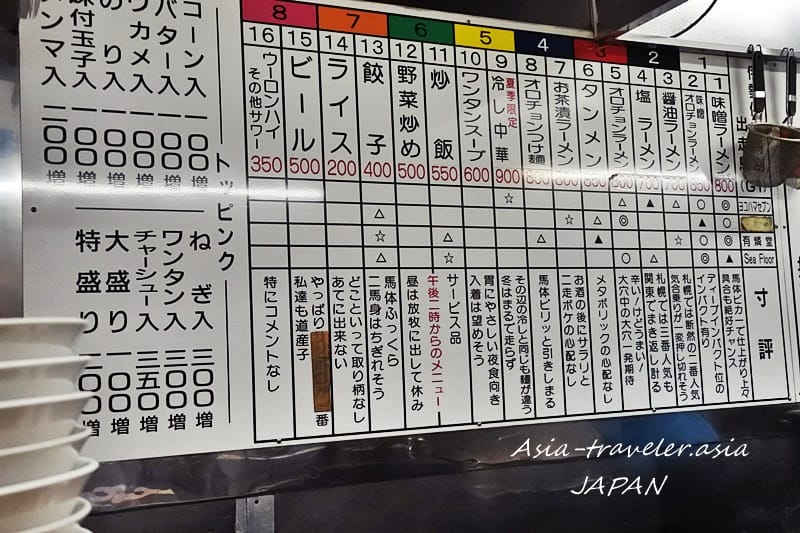 (G1)
ヨコハマセブン
有燐堂
Sea Floor
寸評
1
1
味噌ラーメン
800
馬体ピカ一で仕上がり上々
具合も絶好チャンス
2
味噌
オロチョンラーメン
850
ディープインパクト位の
インパクト有り
2
3
醤油ラーメン
700
札幌では断然の一番人気
気合乗りが一変押し切れそう
4
塩ラーメン
700
札幌では三番人気も
関東でまき返し計る
3
5
オロチョンラーメン
辛い!けどうまい!
大穴中の大穴一発期待
6
タンメン
850
メタボリックの心配なし
4
7
お茶漬ラーメン
お酒の後にサラリと
二走ボケの心配なし
8
オロチョンつけ麺
850
馬体ビリッと引きしまる
5
9
夏季限定
冷し中華
900
その辺の冷しと同じも麺が違う
冬はまるで走らず
10
ワンタンスープ
600
胃にやさしい夜食向き
入着は望めそう
6
11
炒飯
550
サービス品
午後二時からのメニュー
12
野菜炒め
500
昼は放牧に出して休み
7
13
餃子
400
馬体ふっくら
二馬身はちぎれそう
14
ライス
200
どこといって取り柄なし
あてに出来ない
8
15
ビール
500
やっぱり 一番
私達も道産子
16
ウーロンハイ
その他サワー
350
特にコメントなし
トッピング
コーン入
バター入 一〇〇増
ワカメ入 一〇〇増
のり入 一〇〇増
味付玉子入 一〇〇増
メンマ入 一二〇増
ねぎ入 三〇〇増
ワンタン入 三〇〇増
チャーシュー入 三五〇増
大盛り 一〇〇増
特盛り 二〇〇増
Asia-traveler.asia
JAPAN